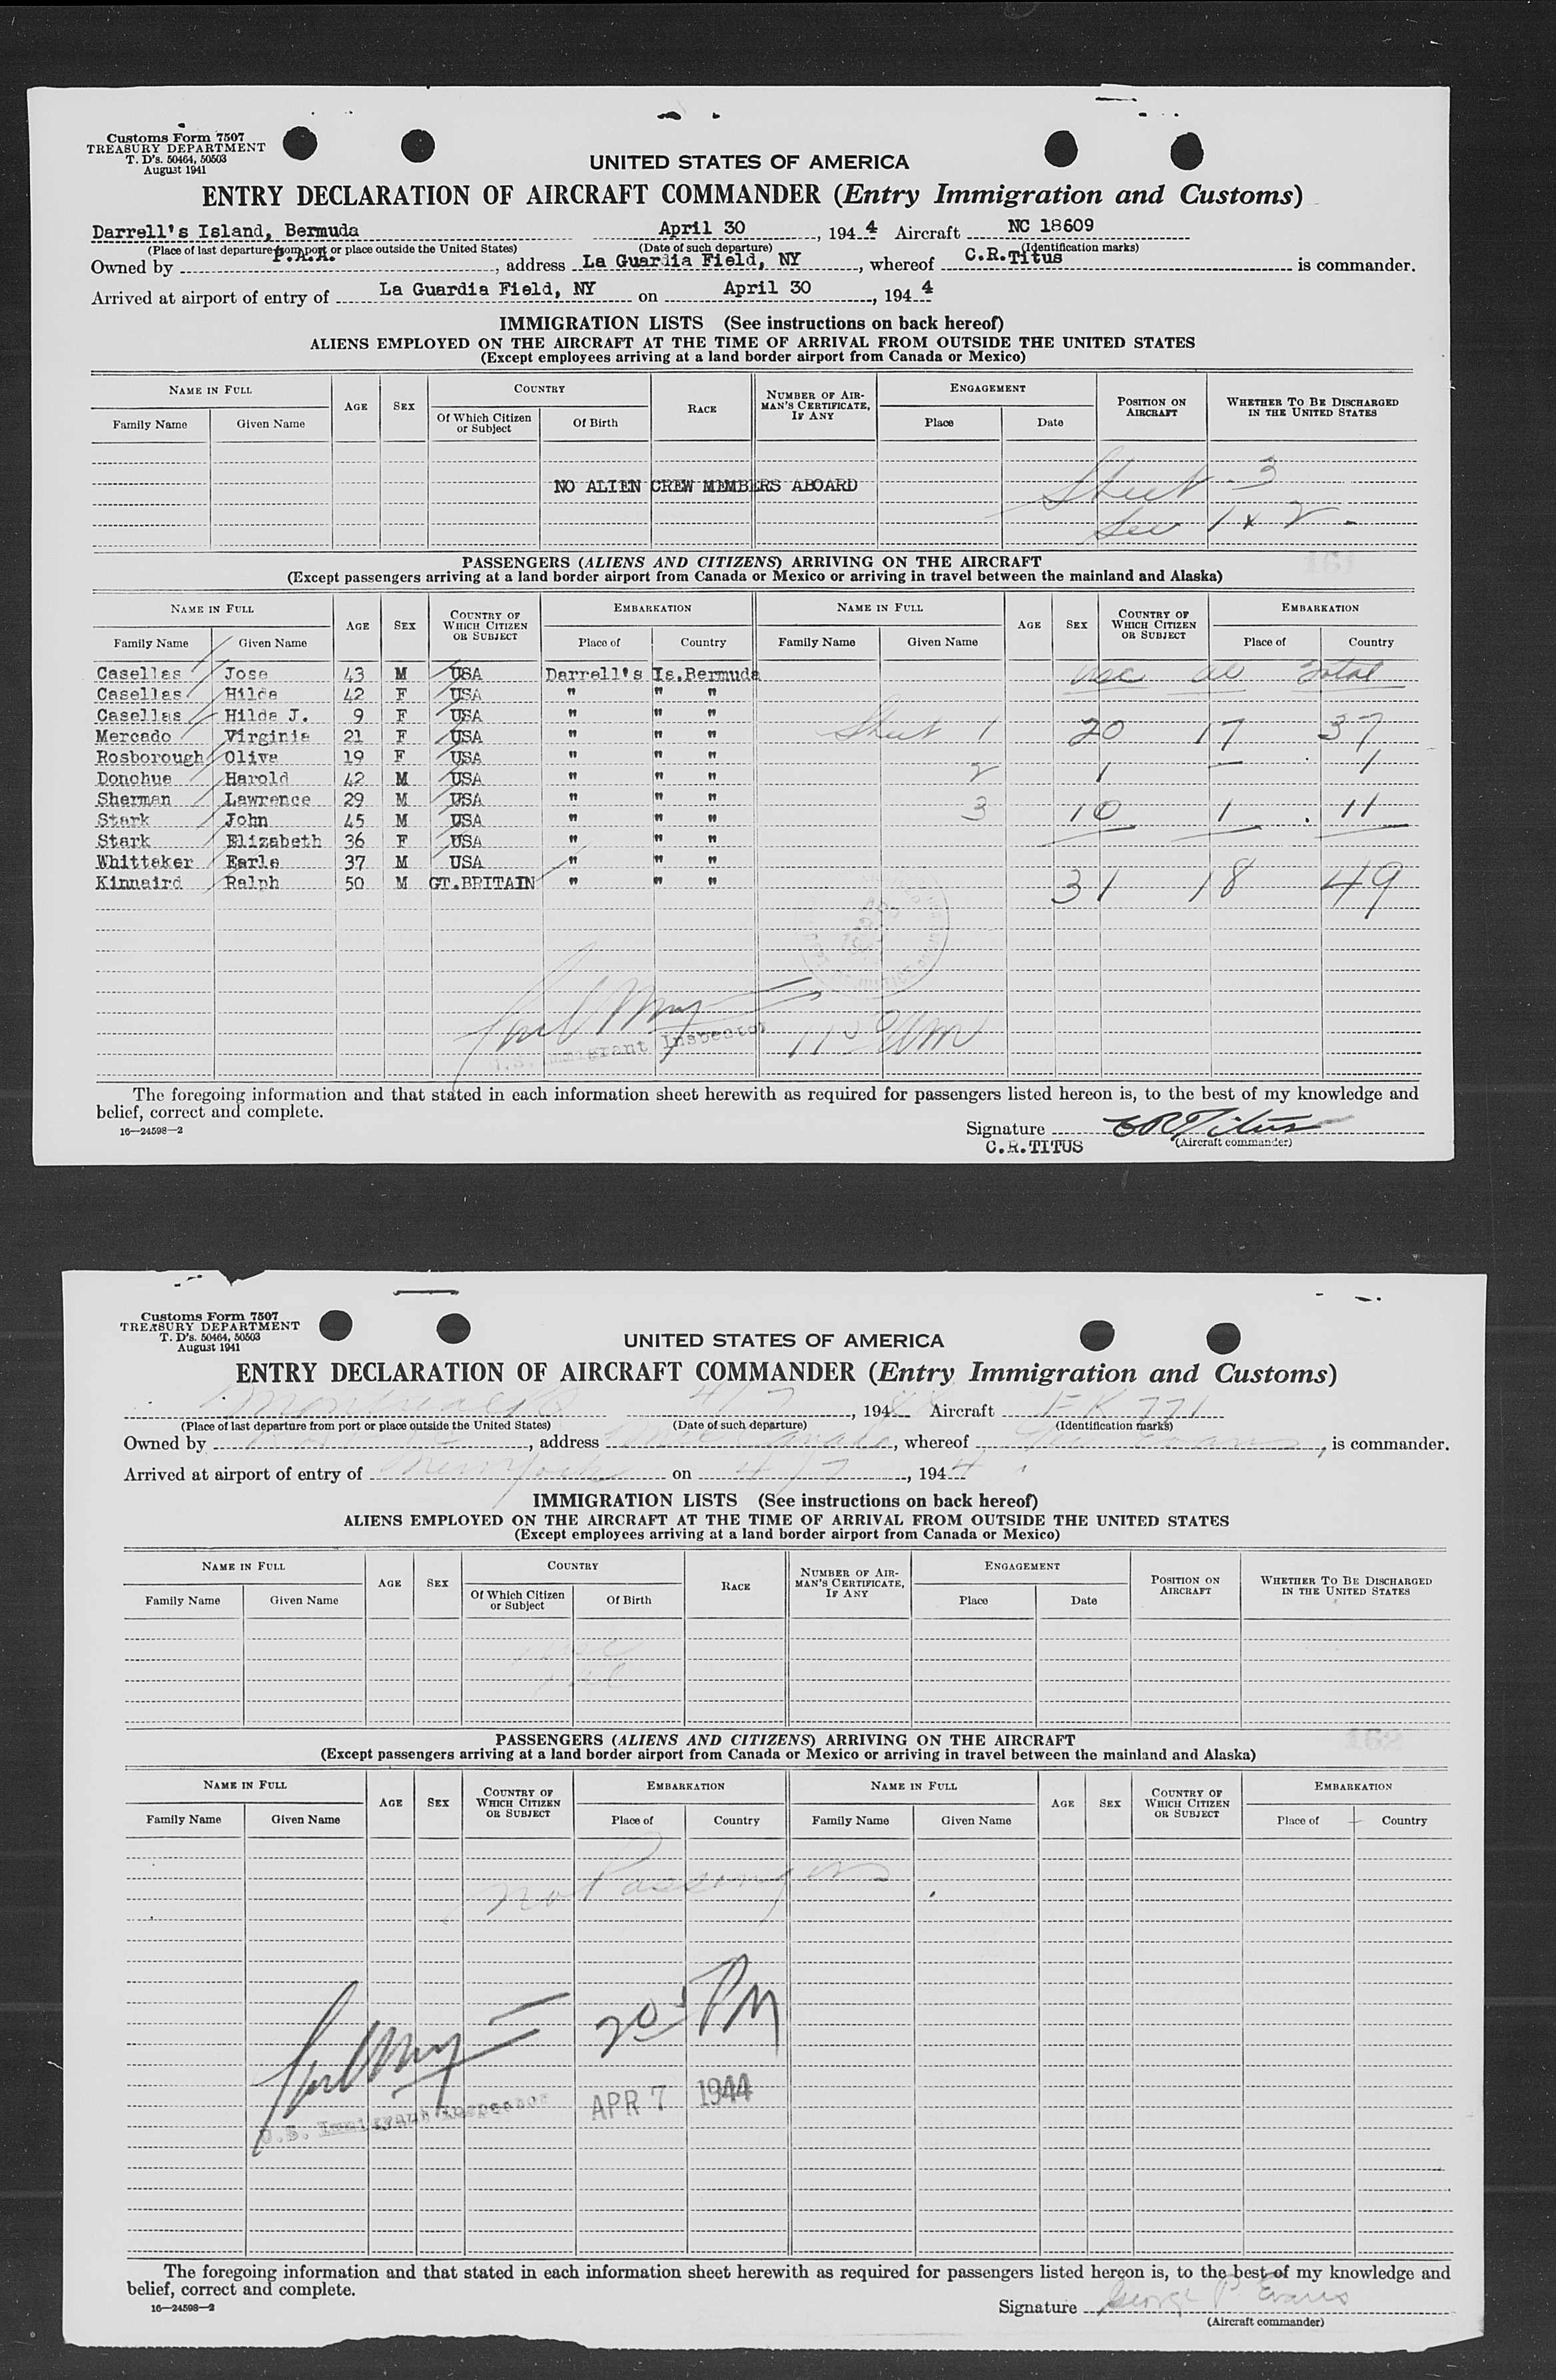 Customs Form 7507
TREASURY DEPARTMENT
T. D's. 50464, 50503
August 1941
UNITED STATES OF AMERICA
ENTRY DECLARATION OF AIRCRAFT COMMANDER (Entry Immigration and Customs)
Darrell's Island, Bermuda April 30, 1944 Aircraft NC 18609
(Place of last departure from port or place outside the United States) (Date of such departure) (Identification marks)
Owned by P.A.A., address La Guardia Field, NY, whereof C.R.Titus is commander.
Arrived at airport of entry of La Guardia Field, NY on April 30, 1944
IMMIGRATION LISTS (See instructions on back hereof)
ALIENS EMPLOYED ON THE AIRCRAFT AT THE TIME OF ARRIVAL FROM OUTSIDE THE UNITED STATES
(Except employees arriving at a land border airport from Canada or Mexico)
NAME IN FULL AGE SEX COUNTRY RACE NUMBER OF AIRMAN'S CERTIFICATE, IF ANY ENGAGEMENT POSITION ON AIRCRAFT WHETHER TO BE DISCHARGED IN THE UNITED STATES
Family Name Given Name Of Which Citizen or Subject Of Birth Place Date
NO ALIEN CREW MEMBERS ABOARD Sheet 3
See 1 x 2
PASSENGERS (ALIENS AND CITIZENS) ARRIVING ON THE AIRCRAFT
161
(Except passengers arriving at a land border airport from Canada or Mexico or arriving in travel between the mainland and Alaska)
NAME IN FULL AGE SEX COUNTRY OF WHICH CITIZEN OR SUBJECT EMBARKATION NAME IN FULL AGE SEX COUNTRY OF WHICH CITIZEN OR SUBJECT EMBARKATION
Family Name Given Name Place of Country Family Name Given Name Place of Country
Casellas Jose 43 M USA Darrell's Is.Bermuda usc al total
Casellas Hilda 42 F USA " " "
Casellas Hilda J. 9 F USA " " "
Mercado Virginia 21 F USA " " " Sheet 1 20 17 37
Rosborough Olive 19 F USA " " "
Donohue Harold 42 M USA " " " 2 1 — 1
Sherman Lawrence 29 M USA " " "
Stark John 45 M USA " " " 3 10 1 11
Stark Elizabeth 36 F USA " " "
Whittaker Earle 37 M USA " " "
Kinnaird Ralph 50 M GT.BRITAIN " " " 31 18 49
U.S. Immigrant Inspector
The foregoing information and that stated in each information sheet herewith as required for passengers listed hereon is, to the best of my knowledge and
belief, correct and complete.
16—24598—2
Signature C R Titus
C.R.TITUS (Aircraft commander)
Customs Form 7507
TREASURY DEPARTMENT
T. D's. 50464, 50503
August 1941
UNITED STATES OF AMERICA
ENTRY DECLARATION OF AIRCRAFT COMMANDER (Entry Immigration and Customs)
Montreal 4/7, 194 Aircraft FK 771
(Place of last departure from port or place outside the United States) (Date of such departure) (Identification marks)
Owned by , address , whereof Evans, is commander.
Arrived at airport of entry of New York on 4/7, 1944
IMMIGRATION LISTS (See instructions on back hereof)
ALIENS EMPLOYED ON THE AIRCRAFT AT THE TIME OF ARRIVAL FROM OUTSIDE THE UNITED STATES
(Except employees arriving at a land border airport from Canada or Mexico)
NAME IN FULL AGE SEX COUNTRY RACE NUMBER OF AIRMAN'S CERTIFICATE, IF ANY ENGAGEMENT POSITION ON AIRCRAFT WHETHER TO BE DISCHARGED IN THE UNITED STATES
Family Name Given Name Of Which Citizen or Subject Of Birth Place Date
PASSENGERS (ALIENS AND CITIZENS) ARRIVING ON THE AIRCRAFT
162
(Except passengers arriving at a land border airport from Canada or Mexico or arriving in travel between the mainland and Alaska)
NAME IN FULL AGE SEX COUNTRY OF WHICH CITIZEN OR SUBJECT EMBARKATION NAME IN FULL AGE SEX COUNTRY OF WHICH CITIZEN OR SUBJECT EMBARKATION
Family Name Given Name Place of Country Family Name Given Name Place of Country
no Passengers
20 PM
U.S. Immigrant Inspector APR 7 1944
The foregoing information and that stated in each information sheet herewith as required for passengers listed hereon is, to the best of my knowledge and
belief, correct and complete.
16—24598—2
Signature George P. Evans
(Aircraft commander)